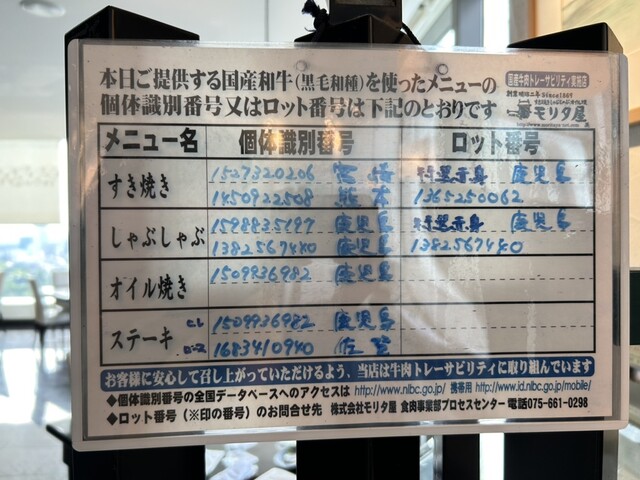 本日ご提供する国産和牛(黒毛和種)を使ったメニューの
個体識別番号又はロット番号は下記のとおりです
国産牛肉トレーサビリティ実施店
創業明治二年 Since1869
モリタ屋
メニュー名 個体識別番号 ロット番号
すき焼き
1527320206 宮崎 特選赤身 鹿児島
1450922508 熊本 1365250062
しゃぶしゃぶ
1598835197 鹿児島 特選赤身 鹿児島
1382567440 鹿児島 1382567440
オイル焼き
1509936982 鹿児島
ステーキ
ヒレ 1509936982 鹿児島
ロース 1683410940 佐賀
お客様に安心して召し上がっていただけるよう、当店は牛肉トレーサビリティに取り組んでいます
◆個体識別番号の全国データベースへのアクセスは http://www.nlbc.go.jp/ 携帯用 http://www.id.nlbc.go.jp/mobile/
◆ロット番号(※印の番号)のお問合せ先 株式会社モリタ屋 食肉事業部プロセスセンター 電話075-661-0298